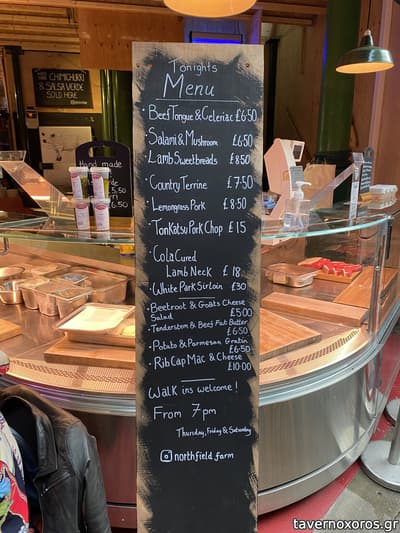 Tonights
Menu
Beef Tongue & Celeriac £6.50
Salami & Mushroom £6.50
Lamb Sweetbreads £8.50
Country Terrine £7.50
Lemongrass Pork £8.50
TonKatsu Pork Chop £15
Cola Cured
Lamb Neck £18
White Park Sirloin £30
Beetroot & Goats Cheese
Salad £5.00
Tenderstem & Beef Fat Butter
£6.50
Potato & Parmesan Gratin
£6.50
Rib Cap Mac & Cheese
£10.00
Walk ins welcome!
From 7pm
Thursday, Friday & Saturday
northfield_farm
CHIMICHURRI
& SALSA VERDE
SOLD HERE
Hand made
tavernoxoros.gr